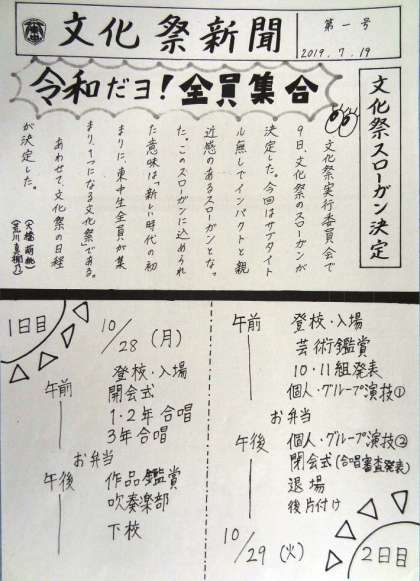 文化祭新聞
第一号
2019.7.19
令和だヨ!全員集合
文化祭スローガン決定
文化祭実行委員会で
9日、文化祭のスローガンが
決定した。今回はサブタイト
ル無しでインパクトと親
近感のあるスローガンとな
た。このスローガンに込められ
た意味は「新しい時代の初
まりに、東中生全員が集
まり、1つになる文化祭」である。
あわせて、文化祭の日程
が決定した。
1日目
10/28(月)
午前
登校・入場
開会式
1・2年合唱
3年合唱
お弁当
午後
作品鑑賞
吹奏楽部
下校
午前
登校・入場
芸術鑑賞
10・11組発表
個人・グループ演技①
お弁当
午後
個人・グループ演技②
閉会式(合唱審査発表)
退場
後片付け
10/29(火)
2日目